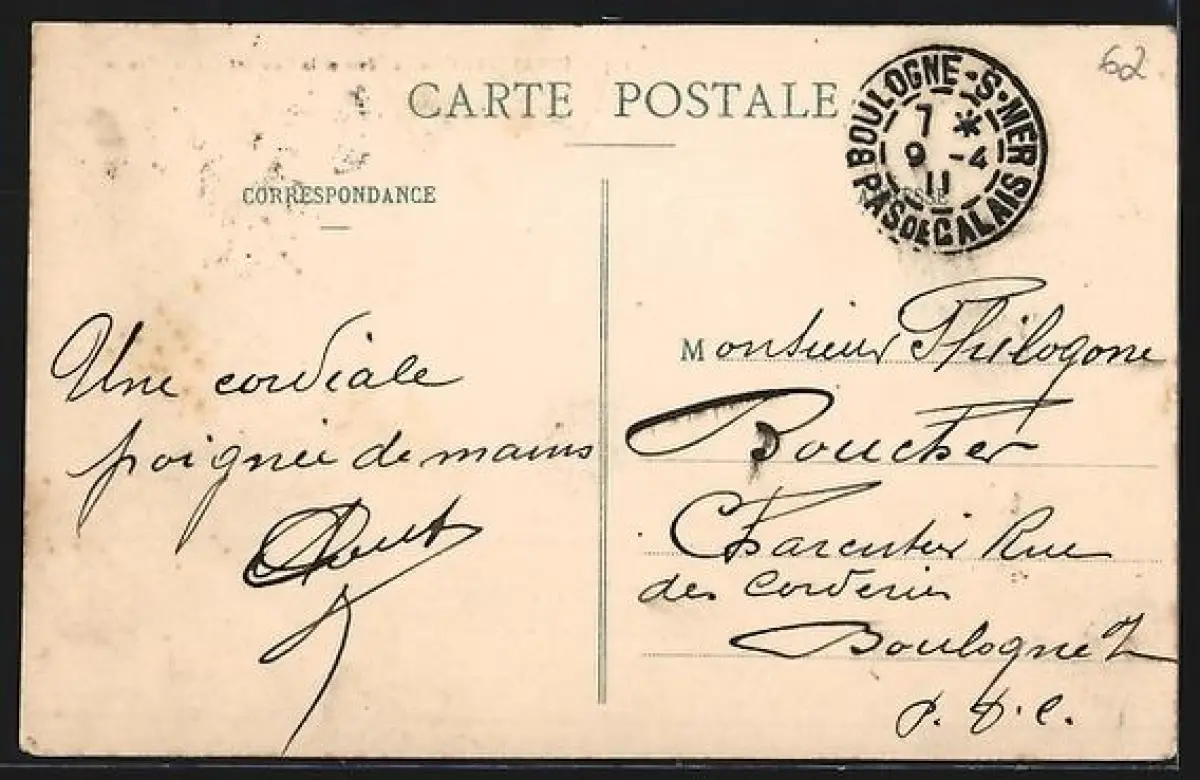 CARTE POSTALE
62
BOULOGNE-S-MER
7 *
9 -4
11
PAS DE CALAIS
CORRESPONDANCE
Une cordiale
poignée de mains
Monsieur Philogone
Boucher
Charentier Rue
des Corderies
Boulogne
P. d. C.